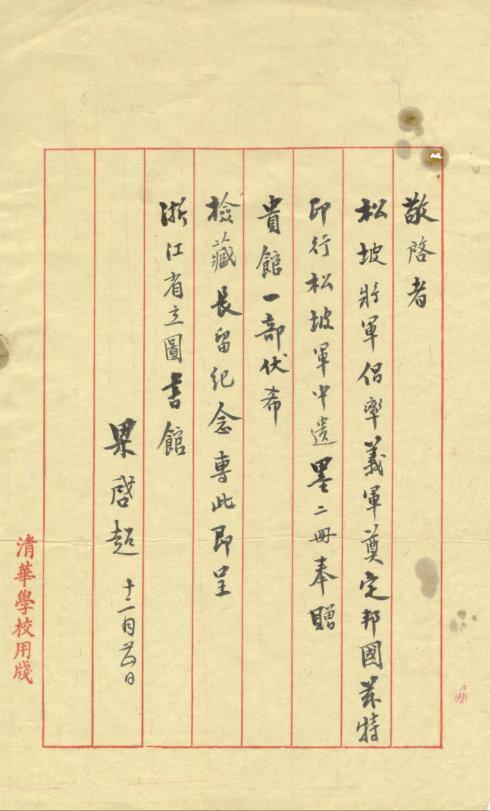 敬啓者
松坡將軍倡率義軍奠定邦國茲特
印行松坡軍中遺墨二冊奉贈
貴館一部伏希
檢藏長留紀念專此即呈
浙江省立圖書館
梁啓超 十二月廿四日
清華學校用牋